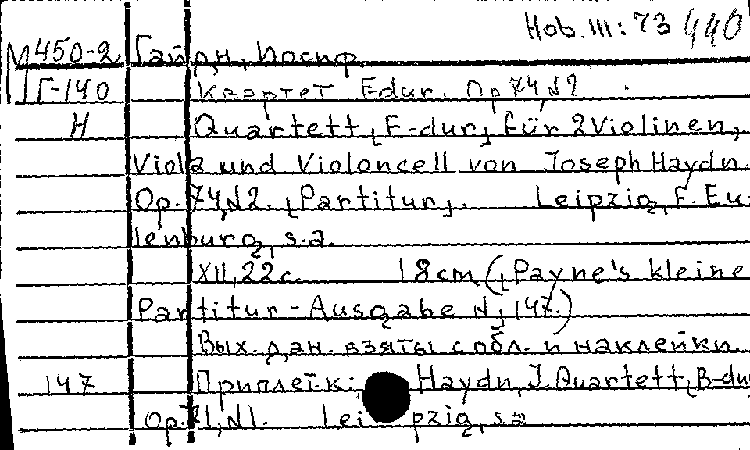 Hob. III: 73 440
М450-2 Гайдн, Иосиф
Г-140 Квартет F dur. Op 74, N2
H Quartett, [F-dur] für 2 Violinen,
Viola und Violoncell von Joseph Haydn.
Op. 74, N2. [Partitur]. Leipzig, E. Eu-
lenburg, s.a.
XII, 22 с. 18 cm ([Payne's kleine
Partitur-Ausgabe N] 147.)
Вых. дан. взяты с обл. и наклейки
147 Приплет к: Haydn, J. Quartett, B-dur
Op. 71, N1. Leipzig, s.a